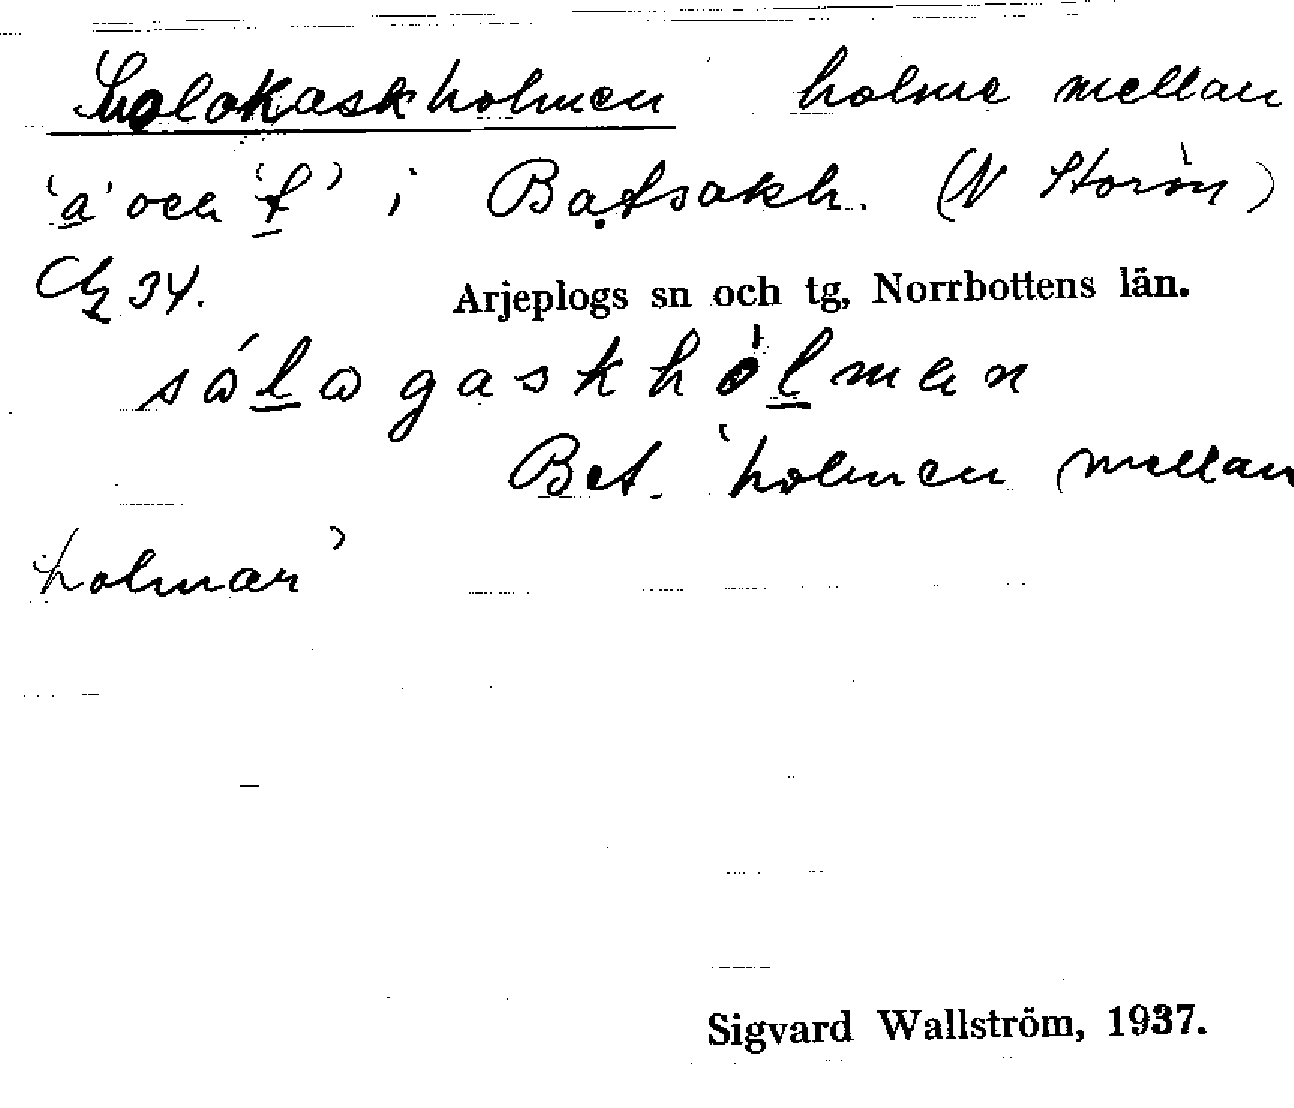 Suolokaskholmen holme mellan
'a' och 't' i Batsakh. (N Storön)
34.
Arjeplogs sn och tg, Norrbottens län.
Bet. 'holmen mellan
holmar'
Sigvard Wallström, 1937.